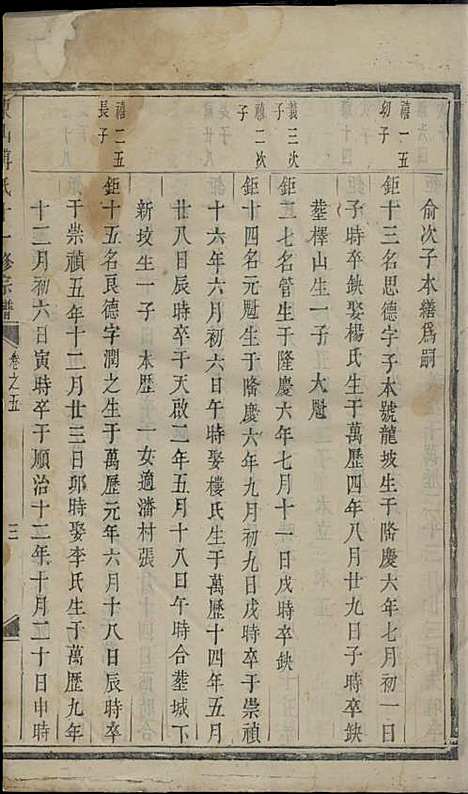 俞次子本繕爲嗣
禧一五
幼子
鉅十三名思德字子本號龍坡生于隆慶六年七月初一日
子時卒缺娶楊氏生于萬歷四年八月廿九日子時卒缺
塟樟山生一子 大魁
義三次
子
鉅二七名管生于隆慶六年七月十一日戌時卒缺
禧二次
子
鉅十四名元魁生于隆慶六年九月初九日戌時卒于崇禎
十六年六月初六日午時娶樓氏生于萬歷十四年五月
廿八日辰時卒于天啟二年五月十八日午時合塟城下
新坟生一子 日本歷 一女適潘村張
禧二五
長子
鉅十五名良德字潤之生于萬歷元年六月十八日辰時卒
于崇禎五年十二月廿三日卯時娶李氏生于萬歷九年
十二月初六日寅時卒于順治十二年十月二十日申時
山傅氏十一修宗譜
卷之五
三